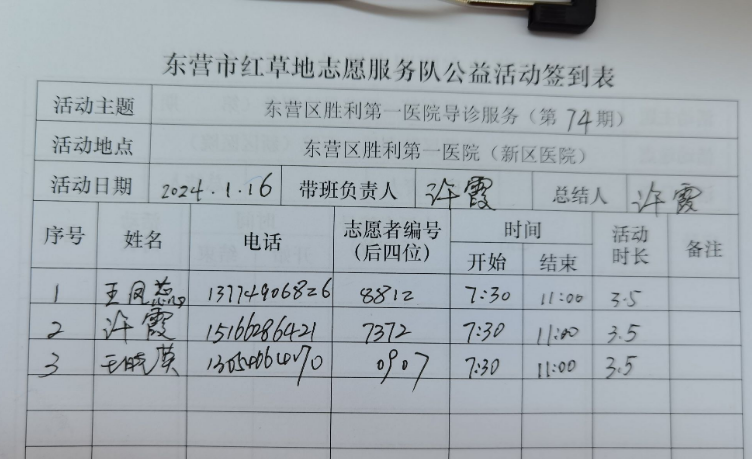 东营市红草地志愿服务队公益活动签到表
活动主题 东营区胜利第一医院导诊服务（第74期）
活动地点 东营区胜利第一医院（新区医院）
活动日期 2024.1.16 带班负责人 许霞 总结人 许霞
序号 姓名 电话 志愿者编号（后四位） 时间 开始 结束 活动时长 备注
1 王凤蕊 13774906826 8812 7:30 11:00 3.5
2 许霞 15166286421 7372 7:30 11:00 3.5
3 王晓英 0907 7:30 11:00 3.5